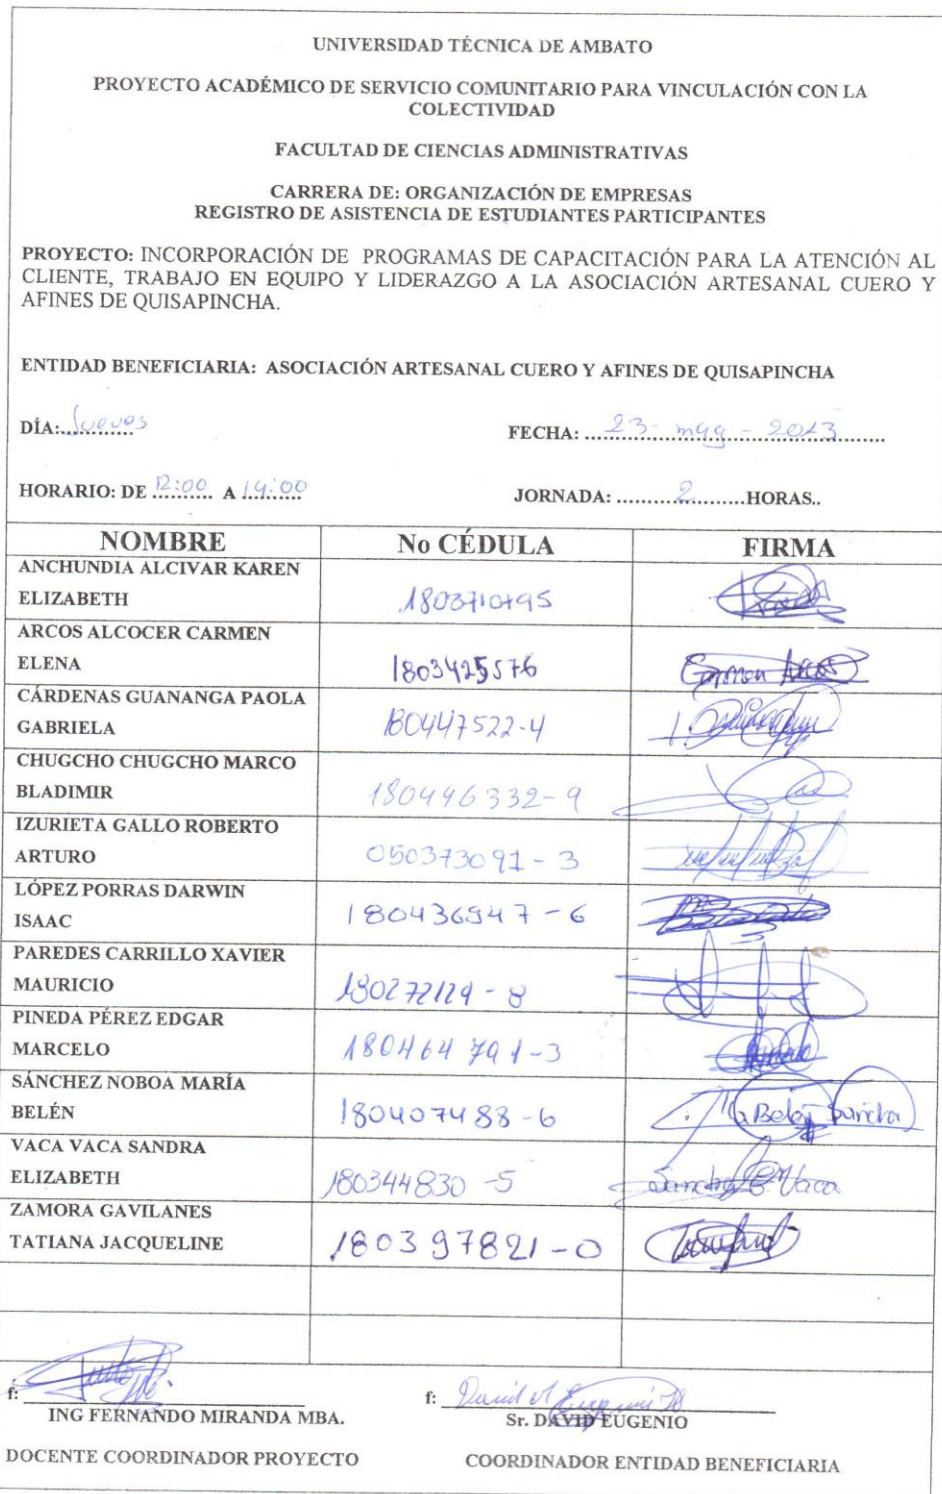 UNIVERSIDAD TÉCNICA DE AMBATO
PROYECTO ACADÉMICO DE SERVICIO COMUNITARIO PARA VINCULACIÓN CON LA
COLECTIVIDAD
FACULTAD DE CIENCIAS ADMINISTRATIVAS
CARRERA DE: ORGANIZACIÓN DE EMPRESAS
REGISTRO DE ASISTENCIA DE ESTUDIANTES PARTICIPANTES
PROYECTO: INCORPORACIÓN DE PROGRAMAS DE CAPACITACIÓN PARA LA ATENCIÓN AL
CLIENTE, TRABAJO EN EQUIPO Y LIDERAZGO A LA ASOCIACIÓN ARTESANAL CUERO Y
AFINES DE QUISAPINCHA.
ENTIDAD BENEFICIARIA: ASOCIACIÓN ARTESANAL CUERO Y AFINES DE QUISAPINCHA
DÍA: Jueves FECHA: 23 - - 2013
HORARIO: DE 12:00 A 14:00 JORNADA: 2 HORAS..
NOMBRE No CÉDULA FIRMA
ANCHUNDIA ALCIVAR KAREN
ELIZABETH
ARCOS ALCOCER CARMEN
ELENA 1803425576 Carmen Arcos
CÁRDENAS GUANANGA PAOLA
GABRIELA 180447522-4
CHUGCHO CHUGCHO MARCO
BLADIMIR 180496332-9
IZURIETA GALLO ROBERTO
ARTURO 050373091-3
LÓPEZ PORRAS DARWIN
ISAAC 180436947-6
PAREDES CARRILLO XAVIER
MAURICIO
PINEDA PÉREZ EDGAR
MARCELO 180464791-3
SÁNCHEZ NOBOA MARÍA
BELÉN 180407488-6 Ma Belén Sánchez
VACA VACA SANDRA
ELIZABETH 180344830-5 Sandra E. Vaca
ZAMORA GAVILANES
TATIANA JACQUELINE 180397821-0
f: f: David Eugenio
ING FERNANDO MIRANDA MBA. Sr. DAVID EUGENIO
DOCENTE COORDINADOR PROYECTO COORDINADOR ENTIDAD BENEFICIARIA